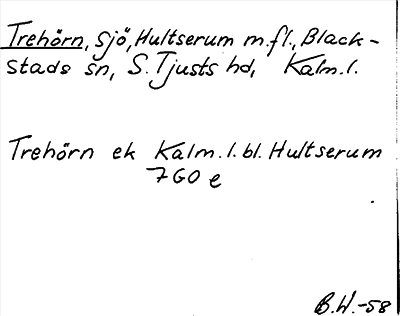 Trehörn, sjö, Hultserum m.fl., Black-
stads sn, S. Tjusts hd, Kalm.l.
Trehörn ek Kalm.l.bl. Hultserum
7GO e
B.W.-58